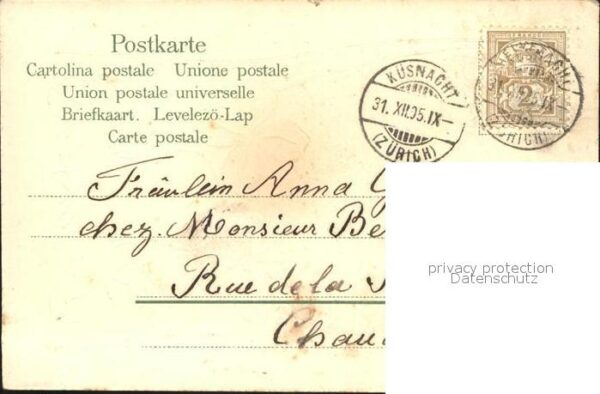 Postkarte
Cartolina postale Unione postale
Union postale universelle
Briefkaart. Levelező-Lap
Carte postale
KÜSNACHT
31. XII.05.IX-
(ZÜRICH)
2
(ZÜRICH)
Fräulein Anna
chez Monsieur Be
Rue de la
Chau
privacy protection
Datenschutz